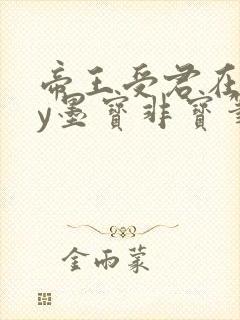 帝王受君在
y墨寶非寶
金雨蒙